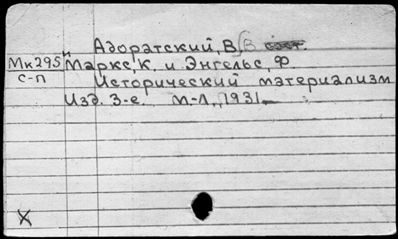 Адоратский, В. В.
Мк295 Маркс, К. и Энгельс, Ф.
с-п Исторический материализм
Изд. 3-е. М-Л, 1931